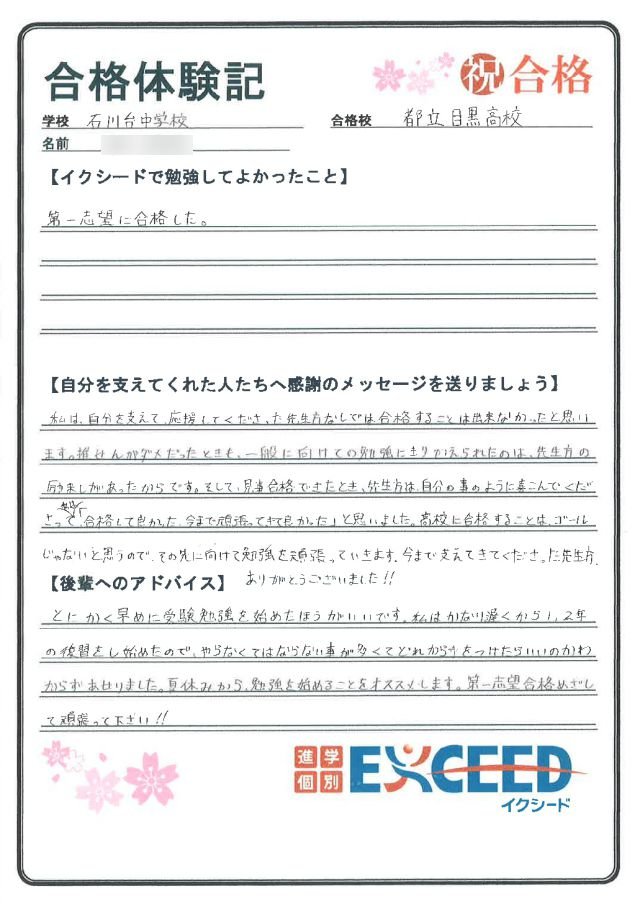 合格体験記
祝 合格
学校 石川台中学校
合格校 都立目黒高校
名前
【イクシードで勉強してよかったこと】
第一志望に合格した。
【自分を支えてくれた人たちへ感謝のメッセージを送りましょう】
私は、自分を支えて、応援してくださった先生方なしでは合格することは出来なかったと思い
ます。推せんがダメだったときも、一般に向けての勉強にきりかえられたのは、先生方の
励ましがあったからです。そして、見事合格できたとき、先生方は、自分の事のように喜こんでくだ
さって、「合格して良かった、今まで頑張ってきて良かった」と思いました。高校に合格することは、ゴール
じゃないと思うので、その先に向けて勉強を頑張っていきます。今まで支えてきてくださった先生方、
ありがとうございました!!
【後輩へのアドバイス】
とにかく早めに受験勉強を始めたほうがいいです。私はかなり遅くから1,2年
の復習をし始めたので、やらなくてはならない事が多くてどれから手をつけたらいいのかわ
からずあせりました。夏休みから、勉強を始めることをオススメします。第一志望合格めざし
て頑張って下さい!!
進学
個別
EXCEED
イクシード